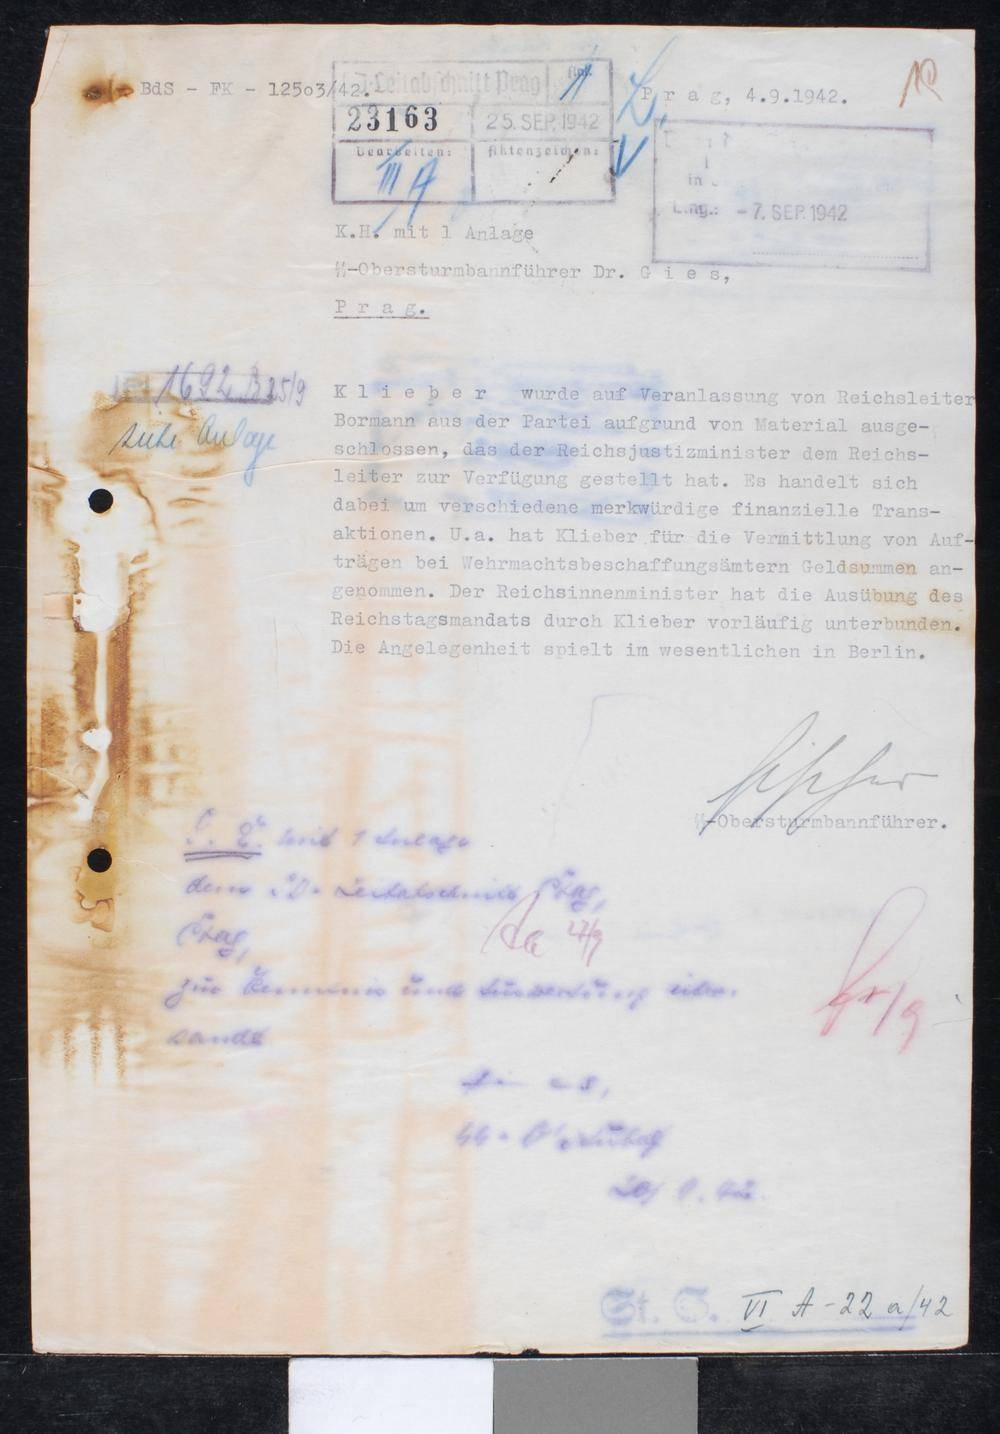 BdS - FK - 12503/42.
SD-Leitabschnitt Prag
Anl.
23163
25. SEP. 1942
Bearbeiter:
Aktenzeichen:
III A
P r a g, 4.9.1942.
in
Eing.: - 7. SEP. 1942
K.H. mit 1 Anlage
ᛋᛋ-Obersturmbannführer Dr. G i e s,
P r a g.
1692 B 25/9
siehe Anlage
K l i e b e r wurde auf Veranlassung von Reichsleiter
Bormann aus der Partei aufgrund von Material ausge-
schlossen, das der Reichsjustizminister dem Reichs-
leiter zur Verfügung gestellt hat. Es handelt sich
dabei um verschiedene merkwürdige finanzielle Trans-
aktionen. U.a. hat Klieber für die Vermittlung von Auf-
trägen bei Wehrmachtsbeschaffungsämtern Geldsummen an-
genommen. Der Reichsinnenminister hat die Ausübung des
Reichstagsmandats durch Klieber vorläufig unterbunden.
Die Angelegenheit spielt im wesentlichen in Berlin.
ᛋᛋ-Obersturmbannführer.
mit 1 Anlage
dem SD-Leitabschnitt Prag,
Prag,
zur Kenntnis und Auswertung über-
sandt
St. S. VI A - 22 a/42